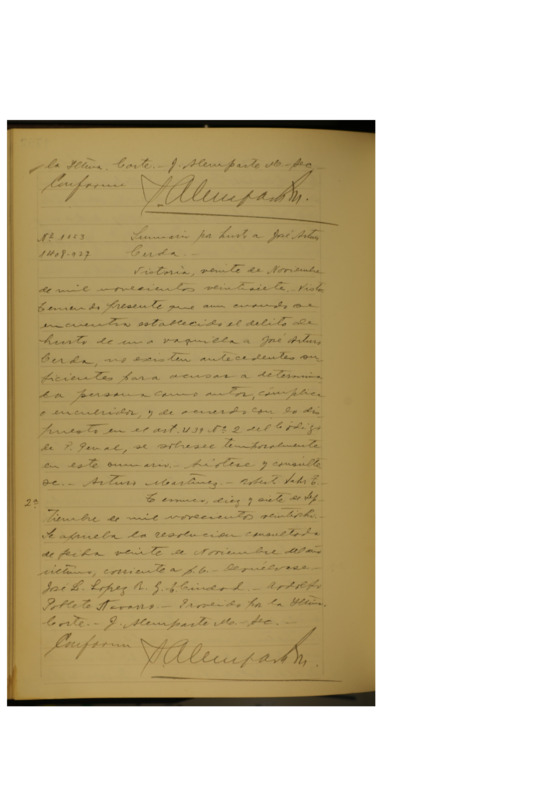 la Iltma. Corte.- J. Alemparte M.- Sec.-
Conforme
J. Alemparte M.
Nº 1053 Sumario por hurto a José Arturo
Cerda.-
Victoria, veinte de Noviembre
de mil novecientos veintisiete. Visto
teniendo presente que aun cuando se
encuentra establecido el delito de
hurto de una vaquilla a José Arturo
Cerda, no existen antecedentes su
ficientes para acusar a determina
da persona como autor, cómplice
o encubridor, y de acuerdo con lo dis
puesto en el art. 439 Nº 2 del Código
de P. Penal, se sobresee temporalmente
en este sumario.- Anótese y consúlte
se.- Arturo Martínez.-
2º Temuco, diez y siete de Sep
tiembre de mil novecientos veintiocho.-
Se aprueba la resolución consultada
de fecha veinte de Noviembre del año
último, corriente a Devuélvase.-
José L. Lopez R. G. Rodolfo
Poblete Navarro.- Proveído por la Iltma.
Corte.- J. Alemparte M.- Sec.-
Conforme
J. Alemparte M.